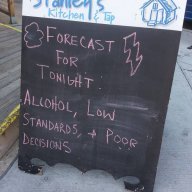 Stanley's
Kitchen & Tap
FORECAST
FOR
TONIGHT:
ALCOHOL, LOW
STANDARDS, + POOR
DECISIONS